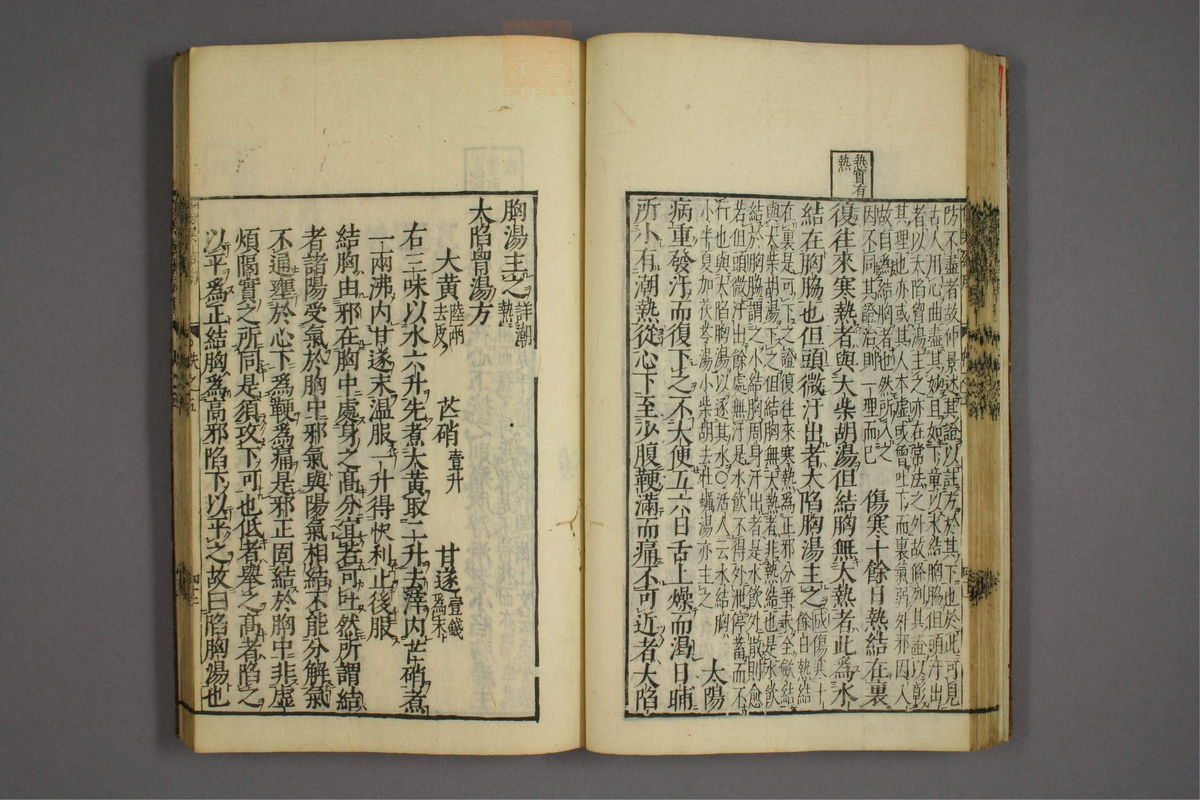 熱實有
熱
防不盡者故仲景述其證以註方於其下也於此可見
古人用心曲盡其妙且如下章以水結胸脇但頭汗出
者以大陷胸湯主之亦在常法之外故條列其證以彰
其理也亦或其人本虛或曾吐下而裏氣弱外邪因入
故自爲結胸者也然所入之
因不同其證治則一理而已
傷寒十餘日熱結在裏
復往來寒熱者與大柴胡湯但結胸無大熱者此爲水
結在胸脇也但頭微汗出者大陷胸湯主之
成傷寒十
餘日熱結
在裏是可下之證復往來寒熱爲正邪分爭未全斂結
與大柴胡湯下之但結胸無大熱者非熱結也是水飲
結於胸脇謂之水結胸周身汗出者是水飲外散則愈
若但頭微汗出餘處無汗是水飲不得外泄停蓄而不
行也與大陷胸湯以逐其水○活人云水結胸
小半夏加茯苓湯小柴胡去棗加牡蠣湯亦主之
太陽
病重發汗而復下之不大便五六日舌上燥而渴日晡
所小有潮熱從心下至少腹鞕滿而痛不可近者大陷
胸湯主之
詳潮
熱
大陷胸湯方
大黃
陸兩
去皮
芒硝
壹升
甘遂
壹錢
爲末
右三味以水六升先煮大黃取二升去滓內芒硝煮
一兩沸內甘遂末溫服一升得快利止後服
結胸由邪在胸中處身之高分宜若可吐然所謂結
者諸陽受氣於胸中邪氣與陽氣相結不能分解氣
不通壅於心下爲鞕爲痛是邪正固結於胸中非虛
煩膈實之所同是須攻下可也低者舉之高者陷之
以平爲正結胸爲高邪陷下以平之故曰陷胸湯也